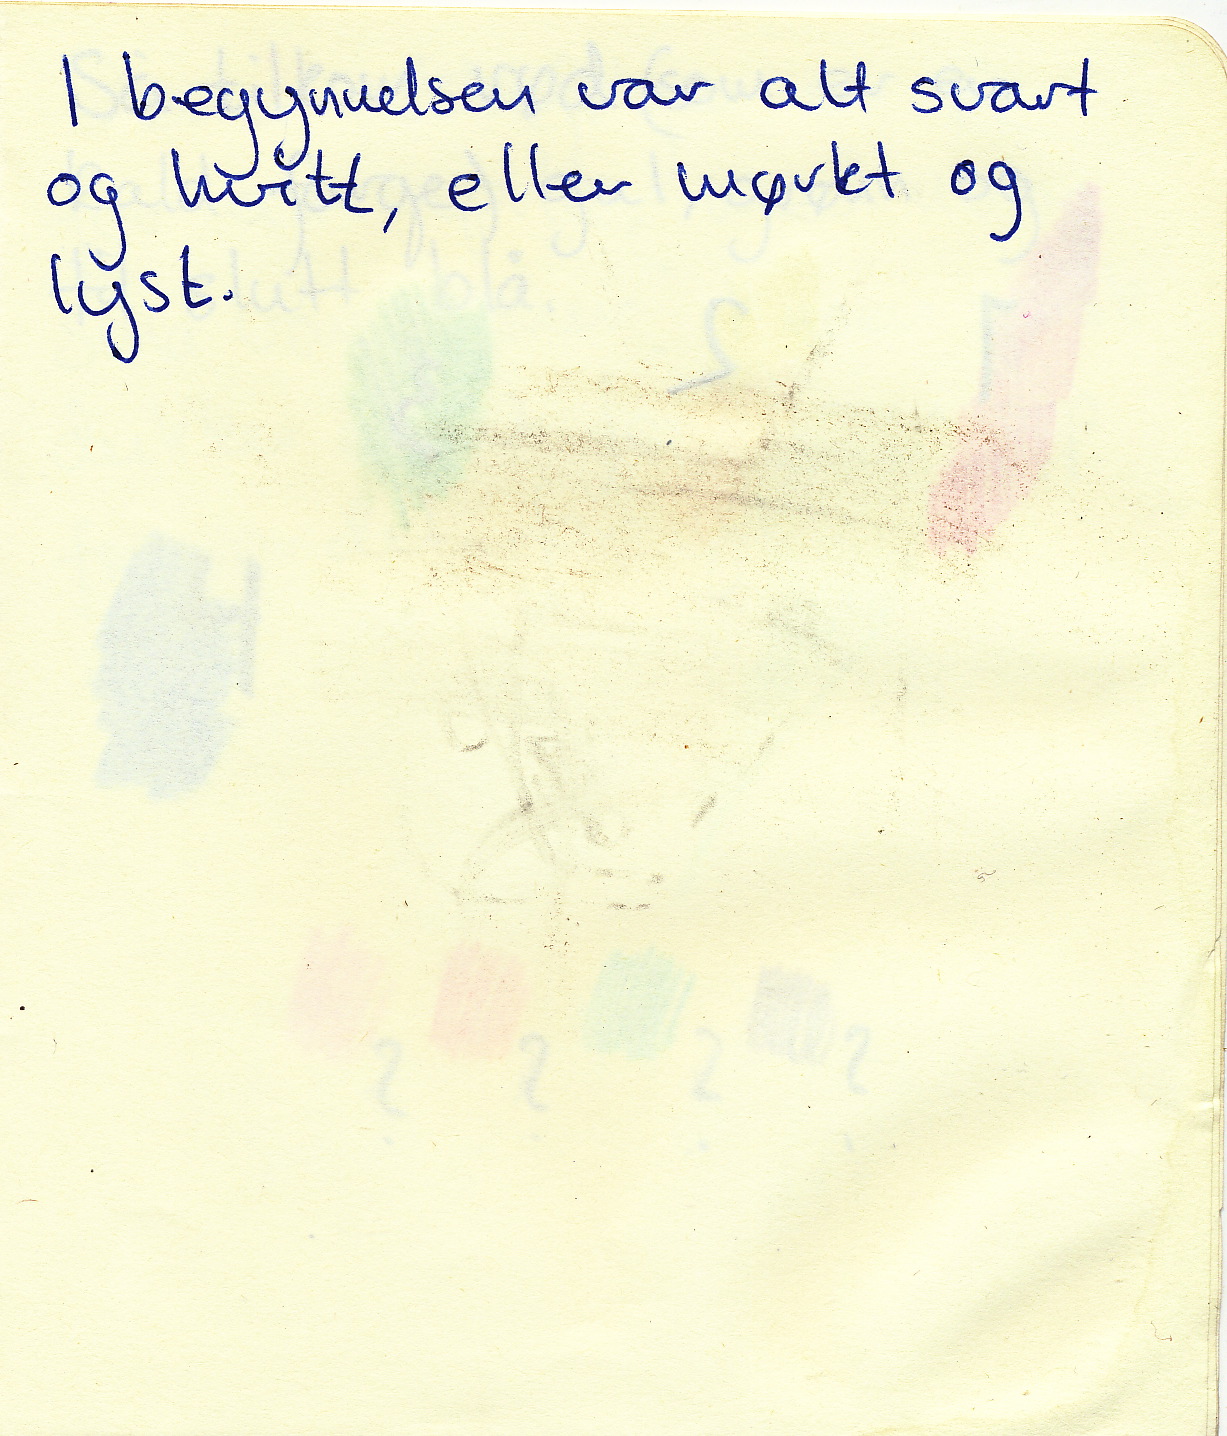 I begynnelsen var alt svart
og hvitt, eller mørkt og
lyst.